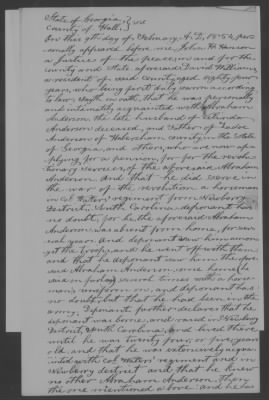 State of Georgia }
County of Hall } SS
On this 9th day of February A.D. 1854, per-
sonally appeared before me John H. Hanson
a Justice of the peace, in and for the
county and State aforesaid David Williams
a resident of said county aged eighty four
years, who being first duly sworn according
to law, saith on oath, that he was personally
and intimately acquainted with Abraham
Anderson, the late husband of
Anderson, deceased, and Father of
Anderson of Habersham county in the State
of Georgia, and others, who are now ap-
plying for a pension, for the revolu-
tionary services of the aforesaid Abraham
Anderson. And that he did serve in
the war of the revolution a horseman
in Col. Waters' regiment from Newberry
District, South Carolina, deponent has
no doubt, for he the aforesaid Abraham
Anderson was absent from home, for sev-
eral years. And deponent saw him among
the troop, and he went off with them,
and that he deponent saw him the afore-
said Abraham Anderson, come home
said on furlough several times with a horse-
man's uniform on, and deponent has
no doubt, but that he had been in the
army. Deponent, further declares that he
deponent was born, and raised in Newberry
District, South Carolina, and lived there
until he was twenty four, or five years
old, and that he was extensively acqua-
inted with Col. Waters' regiment and in
Newberry district and that he knew
no other Abraham Anderson, than
the one mentioned above and he has